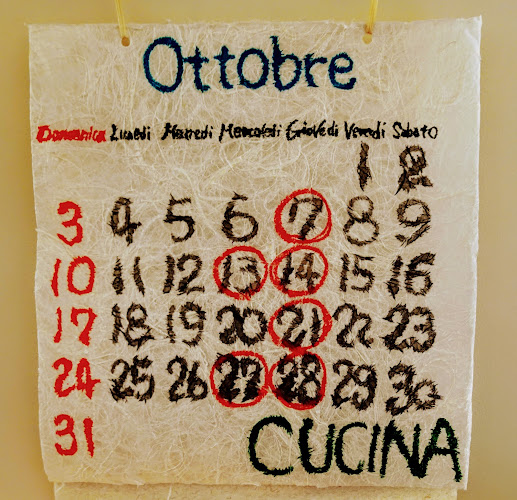 Ottobre
Domenica Lunedi Marredi Mercoledi Giovedi Venerdi Sabato
1 2
3 4 5 6 7 8 9
10 11 12 13 14 15 16
17 18 19 20 21 22 23
24 25 26 27 28 29 30
31 CUCINA